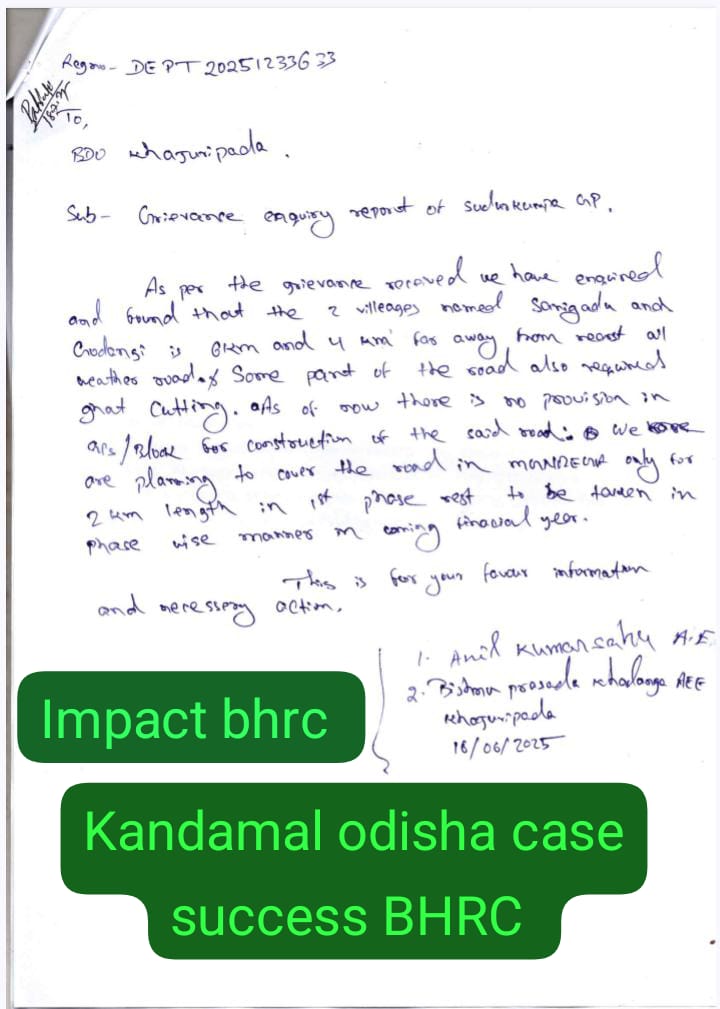 Regno- DEPT20251233633
To,
BDO Khajuripada.
Sub- Grievance enquiry report of sudrukumpa GP.
As per the grievance received we have enquired
and found that the 2 villeages named Sanigadu and
Gradangi is 6km and 4 km far away from nearst all
weather road. Some part of the road also required
ghat cutting. As of now there is no provision in
GPs/Block for construction of the said road. We
are planning to cover the road in MGNREGA only for
2 km length in 1st phase rest to be taken in
phase wise manner in coming finacial year.
This is for your favour information
and necessery action.
1. Anil Kumar sahu A.E
2. Bishnu prasada Khadanga AEE
Khajuripada
18/06/2025
Impact bhrc
Kandamal odisha case
success BHRC